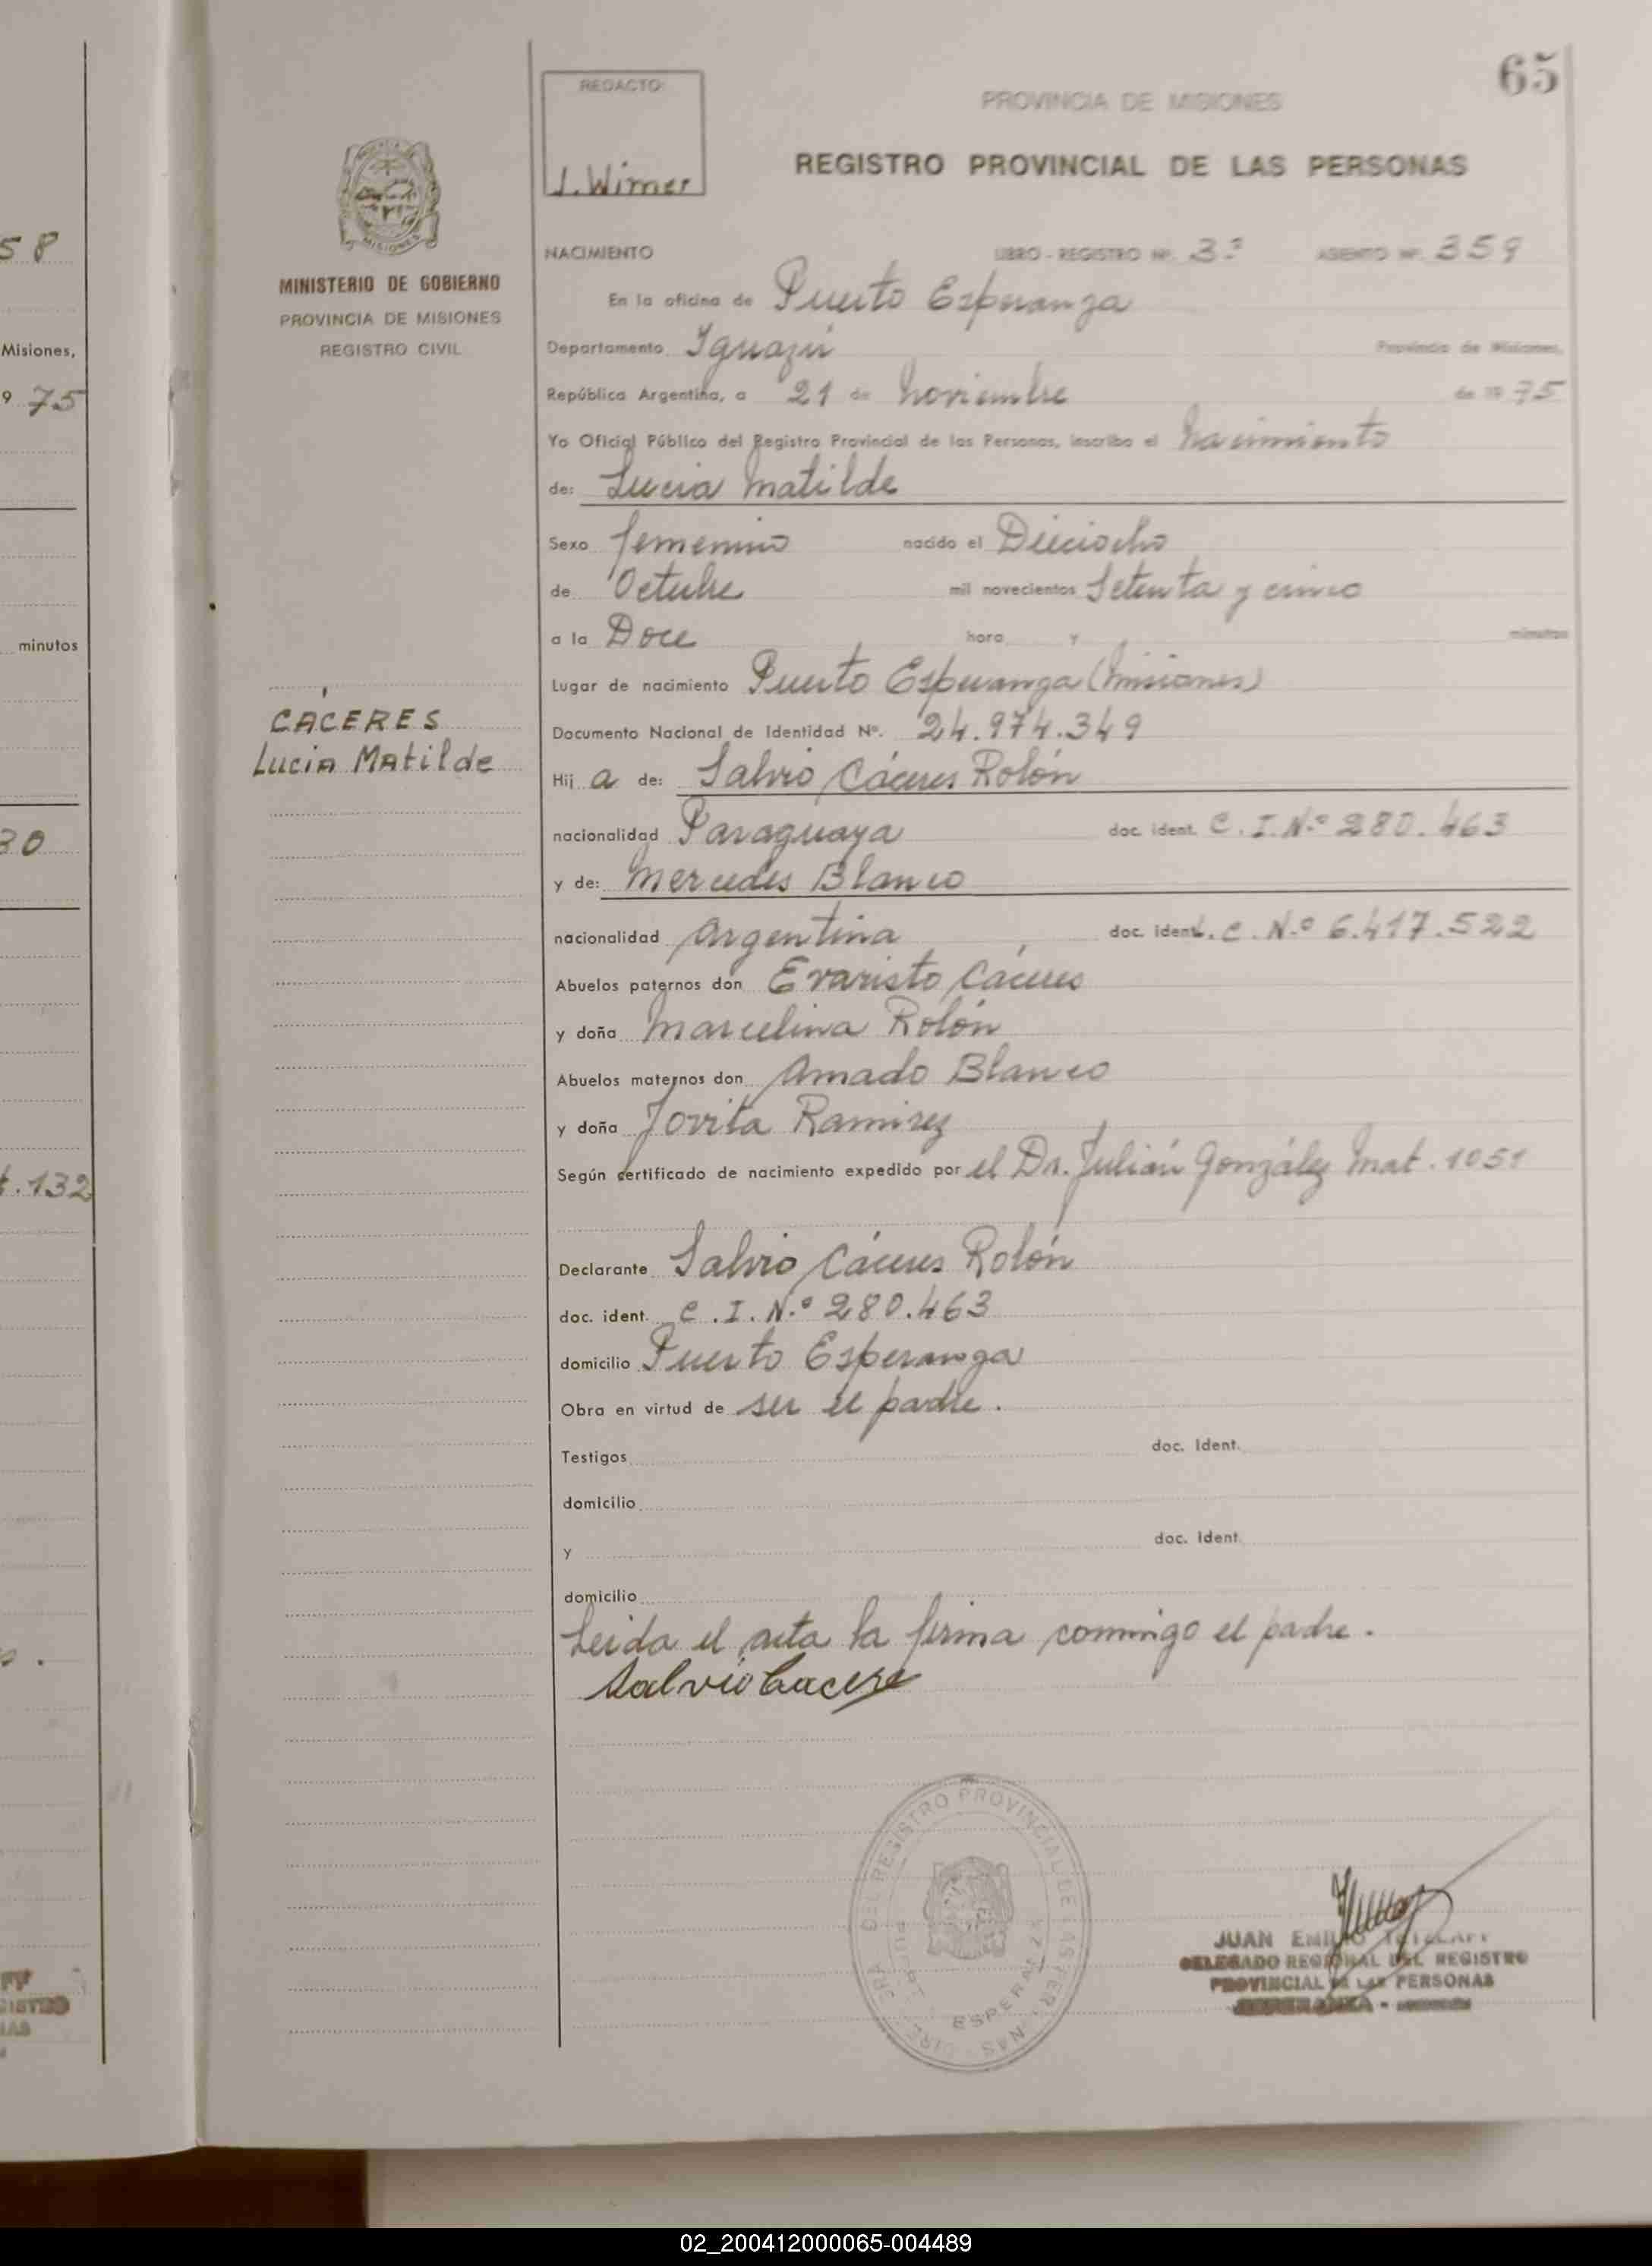 58
Misiones,
9 75
minutos
30
t. 132
65
REDACTO:
J. Wimer
PROVINCIA DE MISIONES
REGISTRO PROVINCIAL DE LAS PERSONAS
MISIONES
MINISTERIO DE GOBIERNO
PROVINCIA DE MISIONES
REGISTRO CIVIL
NACIMIENTO LIBRO - REGISTRO Nº. 3º ASIENTO Nº. 359
En la oficina de Puerto Esperanza
Departamento Iguazú Provincia de Misiones,
República Argentina, a 21 de noviembre de 19 75
Yo Oficial Público del Registro Provincial de las Personas, inscribo el nacimiento
de: Lucia Matilde
Sexo femenino nacido el Dieciocho
de Octubre mil novecientos Setenta y cinco
a la Doce hora y minutos
Lugar de nacimiento Puerto Esperanza (Misiones)
CÁCERES
Lucia Matilde
Documento Nacional de Identidad Nº. 24.974.349
Hij a de: Salvio Cáceres Rolón
nacionalidad Paraguaya doc. ident. C.I.N.º 280.463
y de: Mercedes Blanco
nacionalidad Argentina doc. ident. L.C. N.º 6.417.522
Abuelos paternos don Evaristo Cáceres
y doña Marcelina Rolón
Abuelos maternos don Amado Blanco
y doña Jovita Ramirez
Según certificado de nacimiento expedido por el Dr. Julián González Mat. 1051
Declarante Salvio Cáceres Rolón
doc. ident. C.I.N.º 280.463
domicilio Puerto Esperanza
Obra en virtud de ser el padre.
Testigos doc. Ident.
domicilio
y doc. Ident.
domicilio
Leida el acta la firma conmigo el padre.
Salvio Cacere
DEL REGISTRO PROVINCIAL DE LAS PERSONAS
ESPERANZA
JUAN EMILIO
DELEGADO REGIONAL DEL REGISTRO
PROVINCIAL DE LAS PERSONAS
ESPERANZA -
02_200412000065-004489